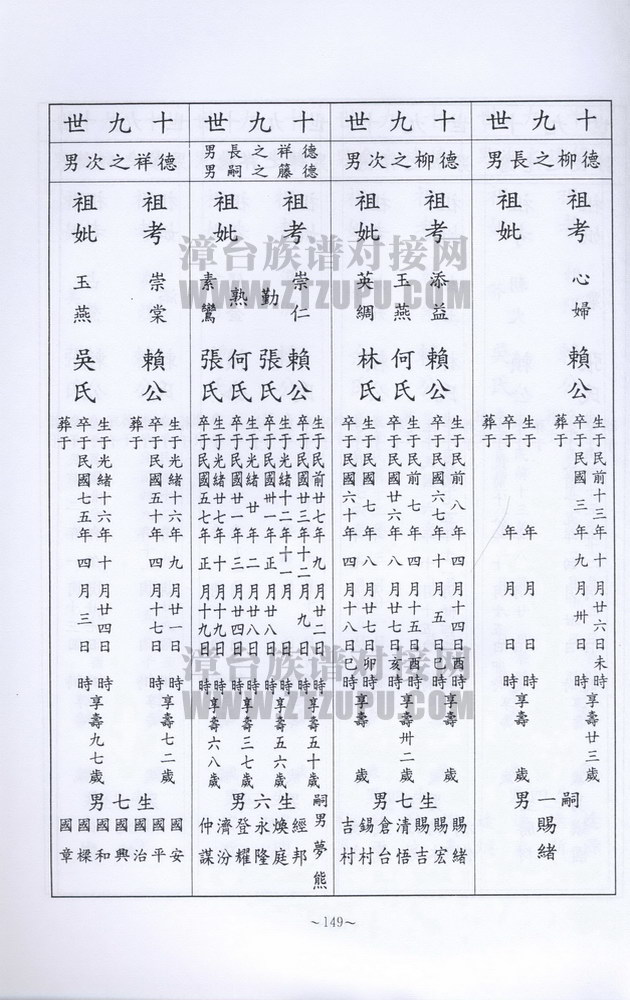 十九世
德柳之長男
祖考
心婦
賴公
生于民前十三年十月廿六日未時享壽廿三歲
卒于民國三年九月卅日
葬于
祖妣
生于 年 月 日 時享壽 歲
卒于 年 月 日 時
葬于
嗣一男
賜緒
十九世
德柳之次男
祖考
添益
賴公
生于民前八年四月十四日酉時享壽 歲
卒于民國六七年十月五日巳時
祖妣
玉燕
何氏
生于民前七年四月十五日酉時享壽卅二歲
卒于民國廿六年八月廿七日亥時
英綢
林氏
生于民國七年八月廿七日卯時享壽 歲
卒于民國六十年四月十八日巳時
生七男
賜緒
賜宏
賜吉
清悟
倉台
錫村
吉村
十九世
德祥之長男
德藤之嗣男
祖考
崇仁
賴公
生于民前廿七年九月廿二日 時享壽五十歲
卒于民國廿三年十二月九日 時
祖妣
勤
張氏
生于光緒十二年十一月 日 時享壽五六歲
卒于民國卅一年正月廿八日 時
熟
何氏
生于光緒廿年二月廿八日 時享壽三七歲
卒于民國廿一年三月廿四日 時
素鸞
張氏
生于光緒廿七年十月十九日 時享壽六八歲
卒于民國五七年正月十九日 時
嗣男夢熊
生六男
經邦
煥庭
永隆
登耀
濟汾
仲謀
十九世
德祥之次男
祖考
崇棠
賴公
生于光緒十六年九月廿一日 時享壽七二歲
卒于民國五十年四月十七日 時
葬于
祖妣
玉燕
吳氏
生于光緒十六年十月廿四日 時享壽九七歲
卒于民國七五年四月三日 時
葬于
生七男
國安
國平
國治
國興
國和
國樑
國章
漳台族谱对接网
WWW.ZTZUPU.COM
漳台族谱对接网
WWW.ZTZUPU.COM
~149~